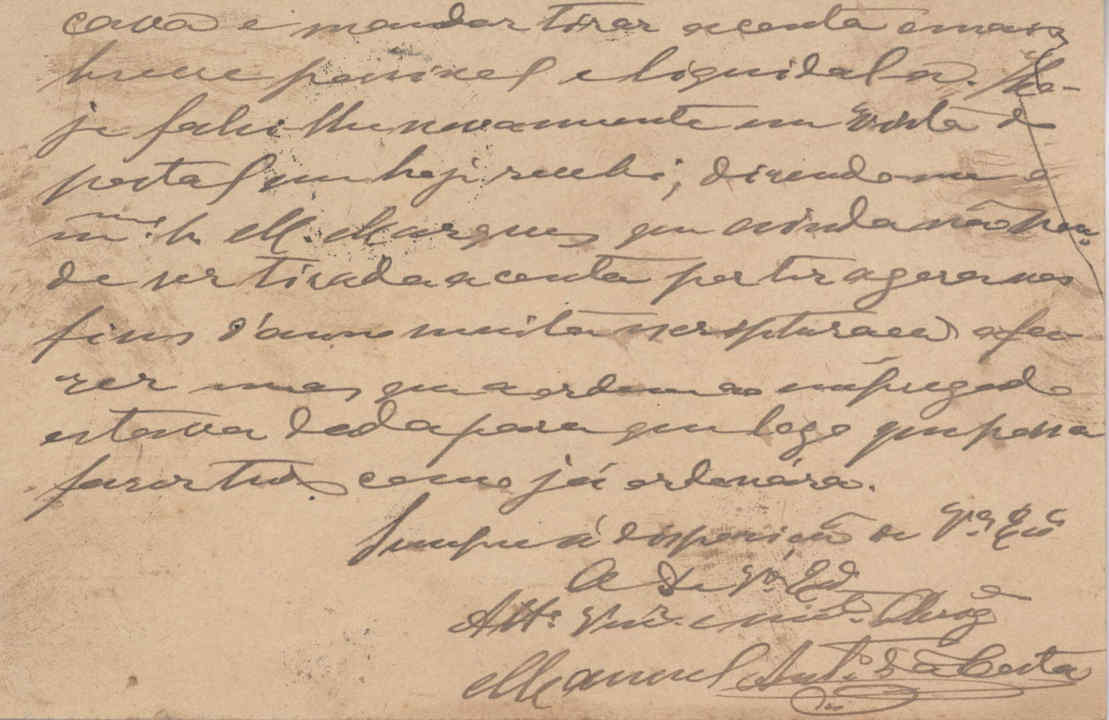 cava e mandar tirar a conta o mais
breve possivel e liquidal-a. Ho-
je falei lhe novamente em vista do
postal que hoje recebi, dizendo-me o
mmo. Snr. M. Marques que ainda não pou-
de ser tirada a conta por ter agora nos
fins d'anno muita escripturação a fa-
zer mas que a ordem ao empregado
estava dada para que logo que possa
fazer tudo como já ordenára.
Sempre á disposição de V.ª Ex.cia
De V.ª Ex.ª
Att.º Ven.or e mt.º Obrig.º
Manuel Ant.º da Costa